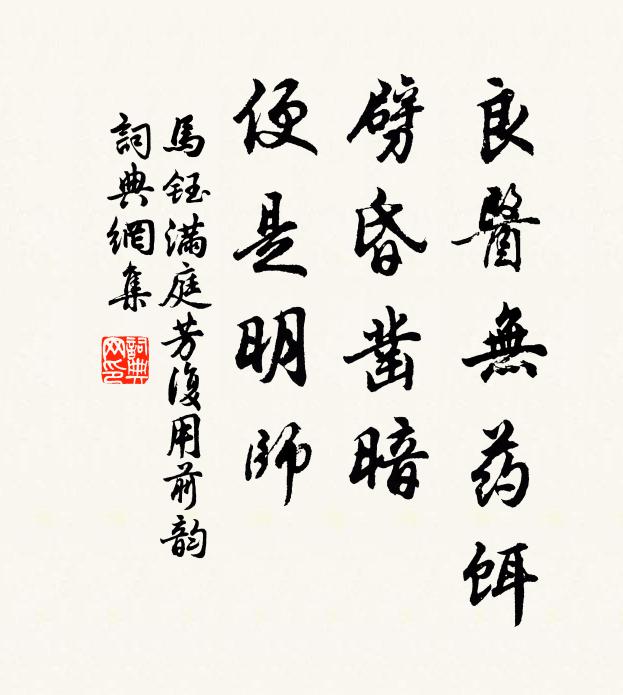 良醫無药餌
劈昏凿暗
便是明師
馬鈺满庭芳復用前韵
詞典網集
詞典网印